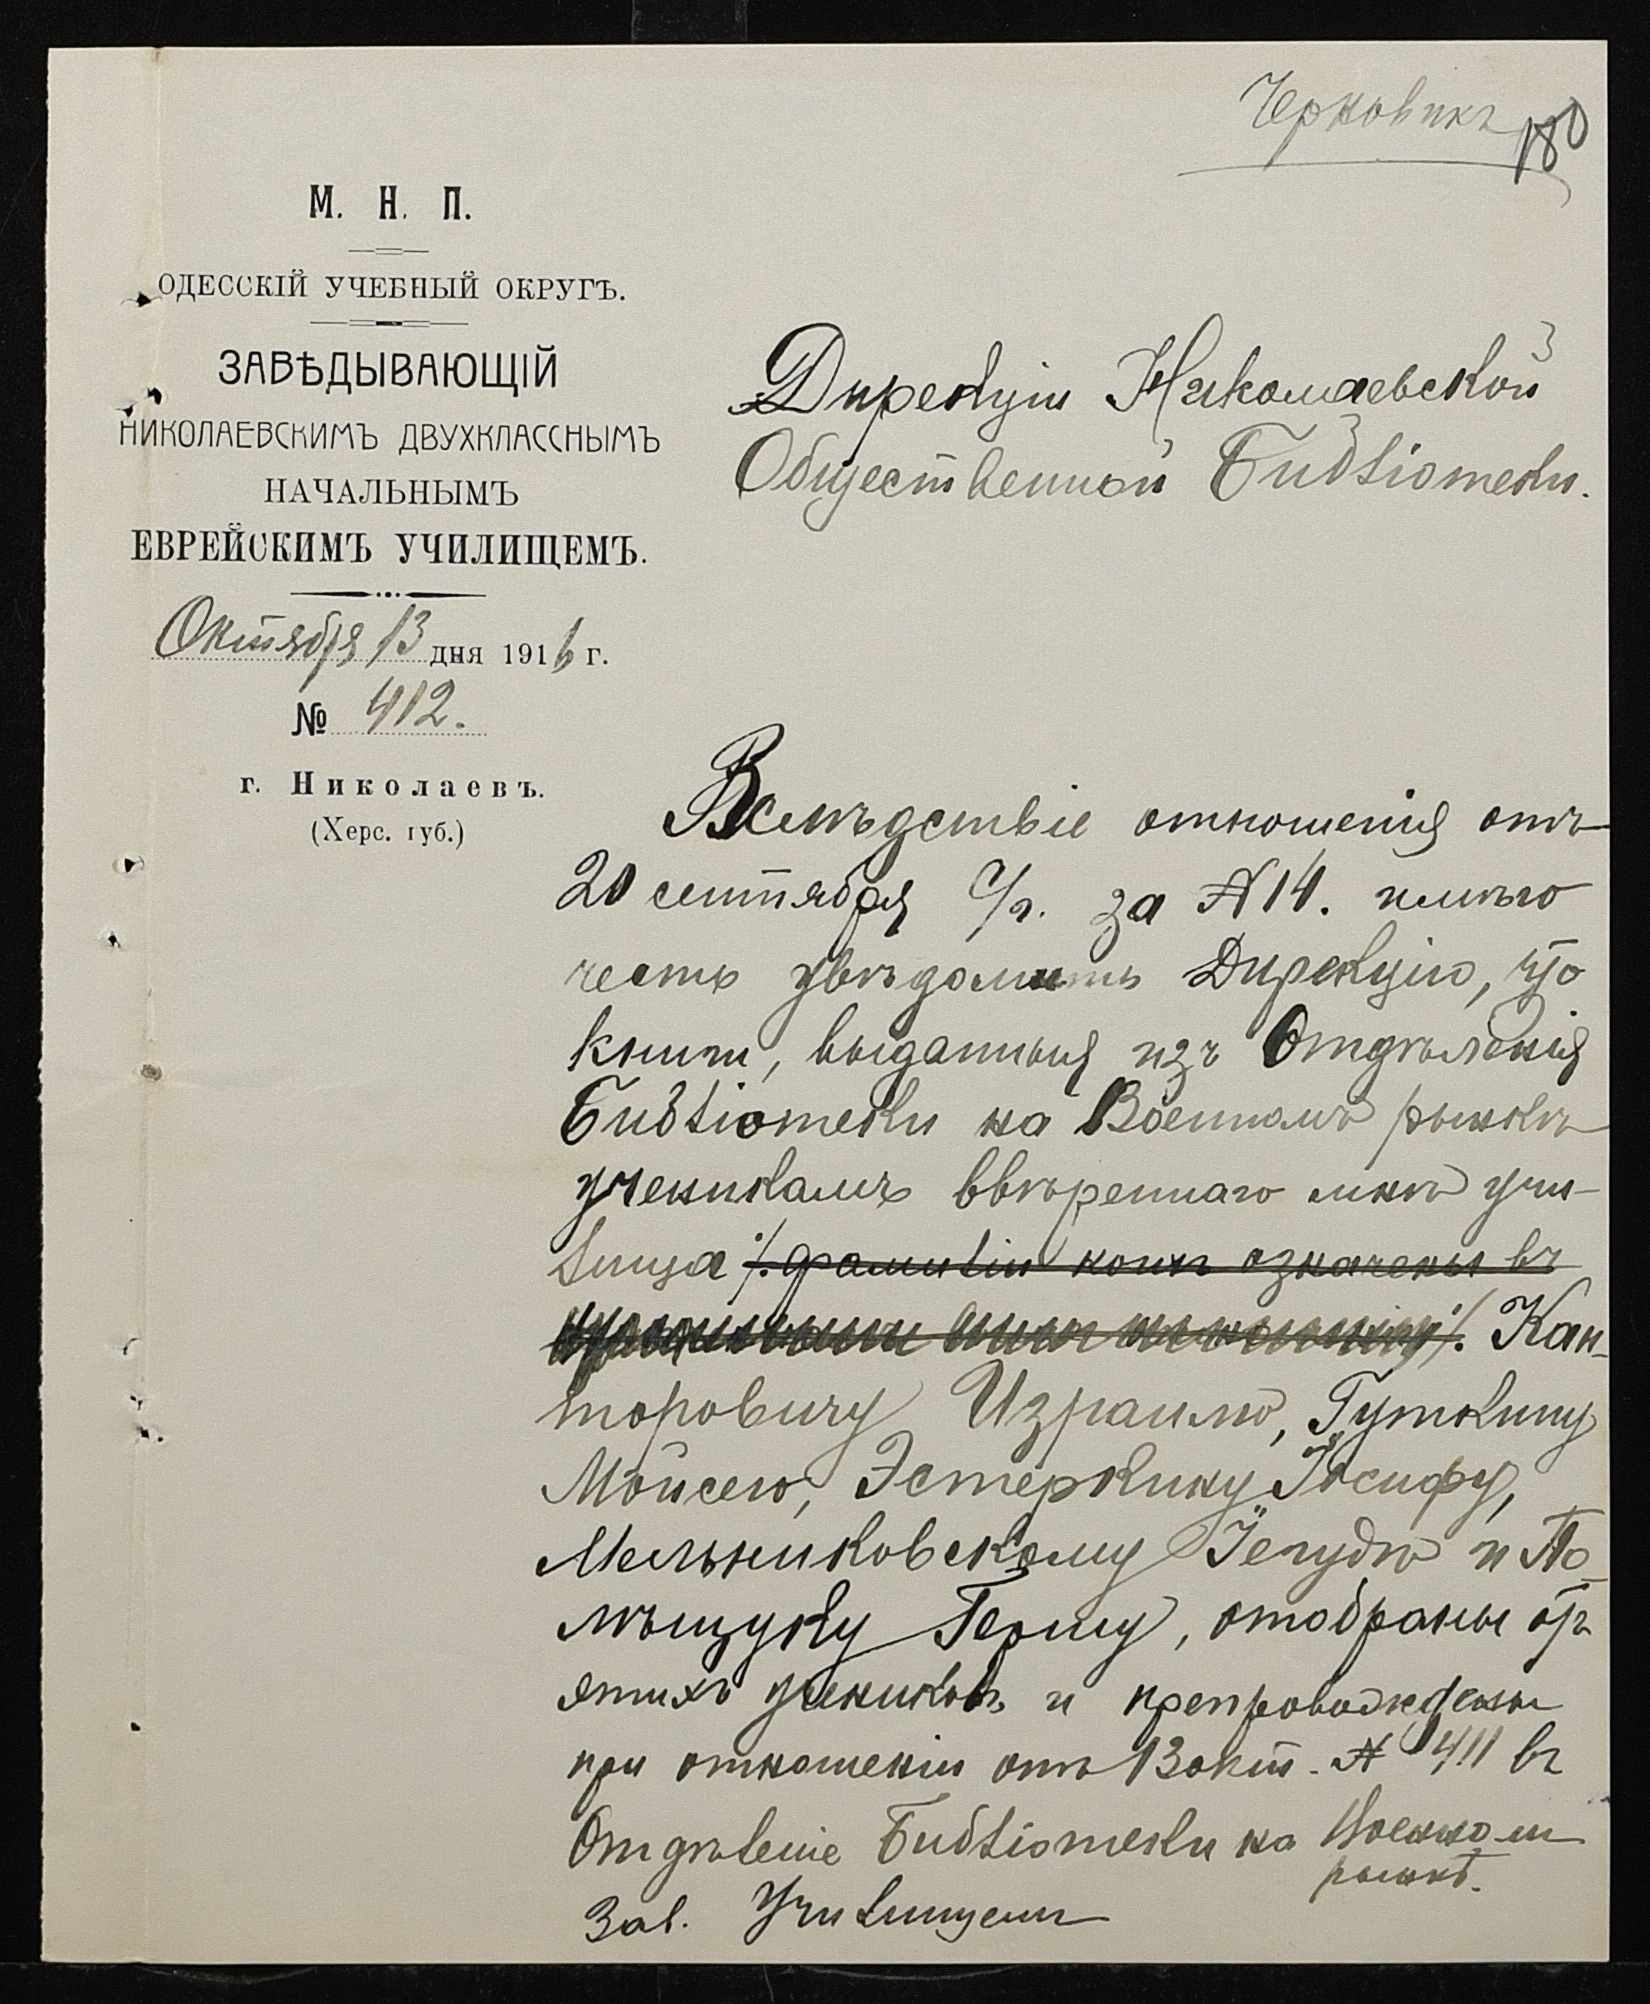 Черновикъ
180
М. Н. П.
ОДЕССКІЙ УЧЕБНЫЙ ОКРУГЪ.
ЗАВѢДЫВАЮЩІЙ
НИКОЛАЕВСКИМЪ ДВУХКЛАССНЫМЪ
НАЧАЛЬНЫМЪ
ЕВРЕЙСКИМЪ УЧИЛИЩЕМЪ.
Октября 13 дня 1916 г.
№ 412.
г. Николаевъ.
(Херс. губ.)
Дирекціи Николаевской
Общественной Библіотеки.
Вслѣдствіе отношенія отъ
20 сентября с/г. за № 14. имѣю
честь увѣдомить Дирекцію, что
книги, выданныя изъ Отдѣленія
Библіотеки на Военномъ рынкѣ
ученикамъ ввѣреннаго мнѣ учи-
лища /. фамиліи коихъ означены въ
./. Кан-
торовичу Израилю, Гуткину
Мойсею, Эстеркину Іосифу,
Мельниковскому Іегудѣ и По-
лѣщуку Гершу, отобраны отъ
этихъ учениковъ и препровождены
при отношеніи отъ 13 окт. № 411 въ
Отдѣленіе Библіотеки на Военномъ
рынкѣ.
Зав. Училищемъ